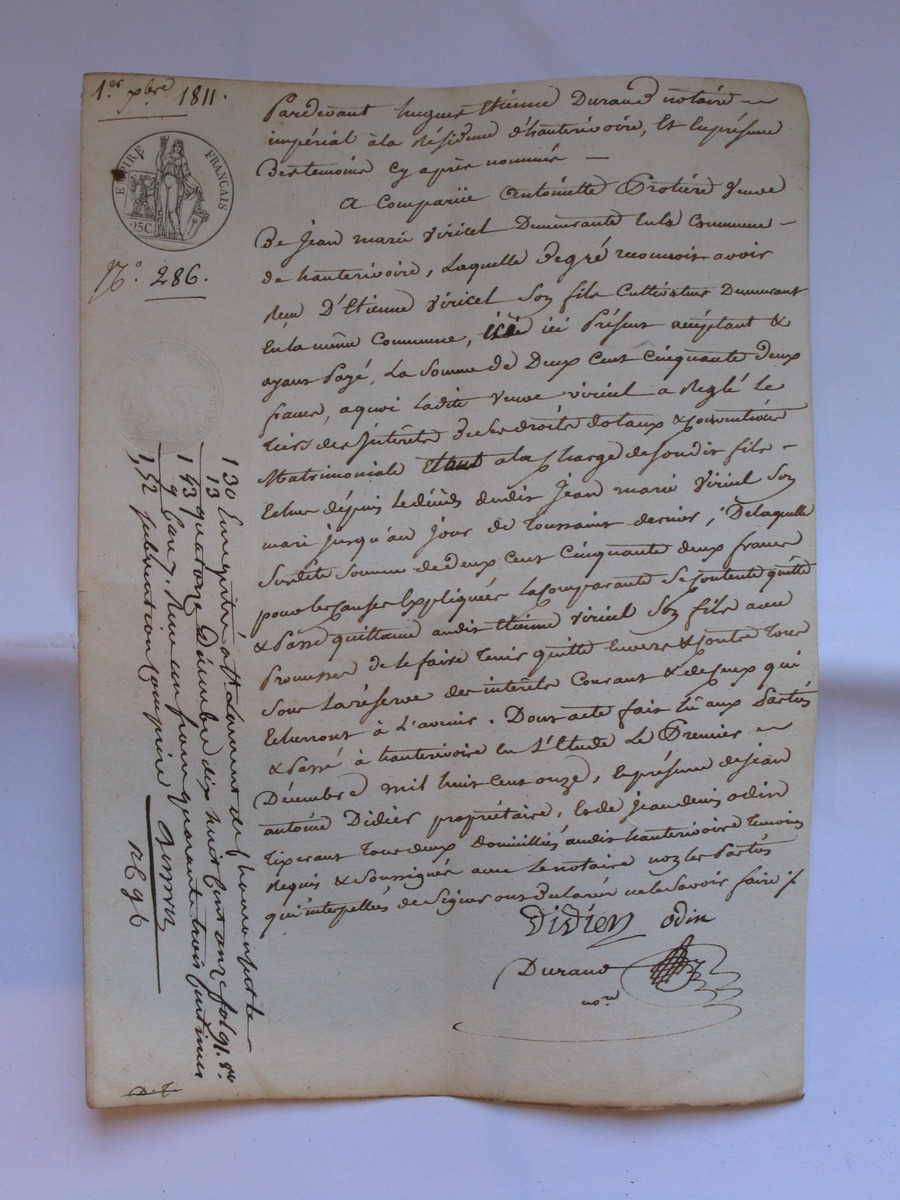 1er xbre 1811.
EMPIRE FRANÇAIS
25C.
N°. 286.
Pardevant hugues Etienne Durand notaire
impérial à la Résidence d'hauterivoire, et en présence
Des temoins cy après nommés —
A Comparüe Antoinette Protière veuve
De Jean marie Viricel Demeurante En la Commune —
de hauterivoire, Laquelle De gré reconnoit avoir
Reçu D'Etienne Viricel Son fils Cultivateur Demeurant
En la même Commune, ici Présent acceptant &
ayant Payé, La Somme de Deux Cent Cinquante deux
francs, a quoi ladite veuve viricel a Reglé Le
tiers des Intérêts De Ses droits dotaux & conventions
Matrimoniale Etant a la Charge de Sondit fils —
Echus depuis le décès dudit Jean marie Viricel Son
mari jusqu'au jour de Toussaint dernier, De laquelle
Susdite Somme de deux Cent Cinquante deux francs
pour les causes Expliquées la comparante Se Contente quitte
& Passe quittance audit Etienne Viricel Son fils avec
Promesse de le faire Tenir quitte Envers & Contre Tous
Sous la réserve des intérêts Courant & de Ceux qui
Echerront à L'avenir. Dont acte fait Lû aux Partïes
& Passé à hauterivoire En L'Etude Le Premier
Décembre mil huit Cent onze, En présence de Jean
antoine Didier propriétaire, & de Jean denis odin
Tixerant Tous deux domiciliés audit hauterivoire Temoins
Requis & Soussignés avec Le notaire non les Partïes
qui interpellées de Signer ont Déclaré ne le Savoir faire
Didier odin
Durand
nore
1 30 Enregistré a St Laurent de Chamousset le
13 quatorze Décembre dix huit Cent onze fol 91. Ro
1 43 Reçu un franc quarante trois Centimes
9
1,52 subvention Comprise